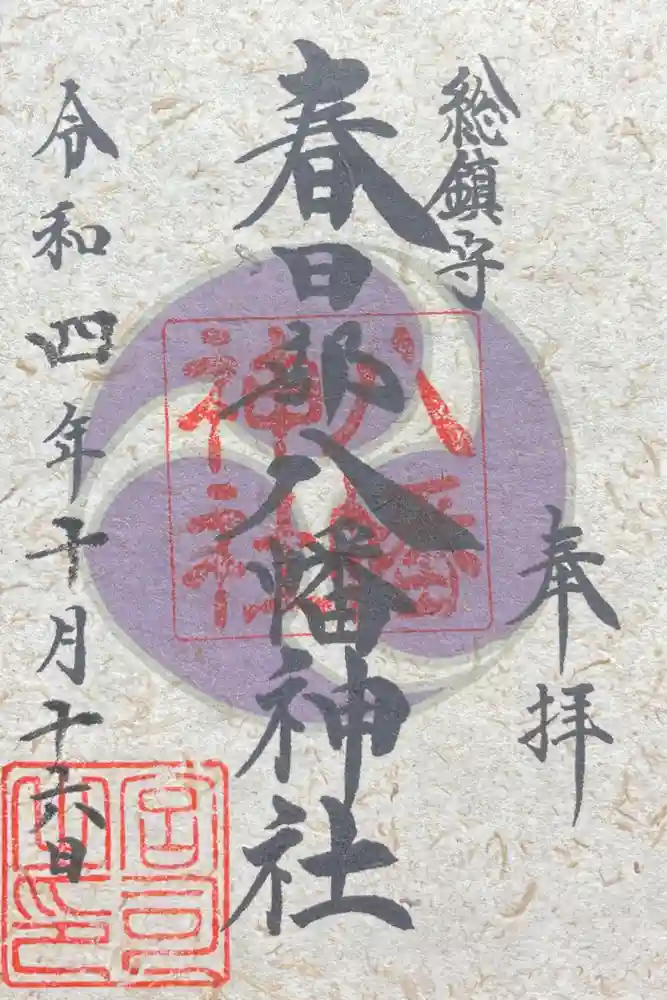 奉拝
総鎮守
春日部八幡神社
令和四年十月十六日
八幡神社
宮司之印